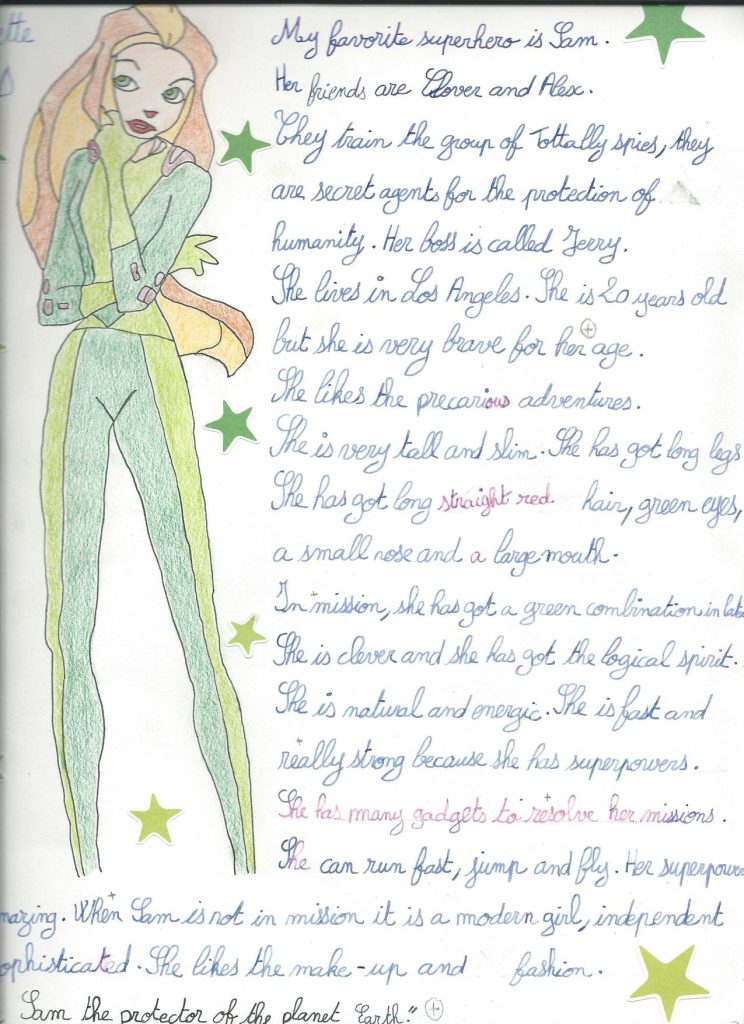 ette
My favorite superhero is Sam.
Her friends are Clover and Alex.
They train the group of Tottally spies, they
are secret agents for the protection of
humanity. Her boss is called Jerry.
She lives in Los Angeles. She is 20 years old
but she is very brave for her age.
She likes the precarious adventures.
She is very tall and slim. She has got long legs
She has got long straight red hair, green eyes,
a small nose and a large mouth.
In mission, she has got a green combination in
She is clever and she has got the logical spirit.
She is natural and energic. She is fast and
really strong because she has superpowers.
She has many gadgets to resolve her missions.
She can run fast, jump and fly. Her superpower
mazing. When Sam is not in mission it is a modern girl, independent
ophisticated. She likes the make-up and fashion.
Sam the protector of the planet Earth."